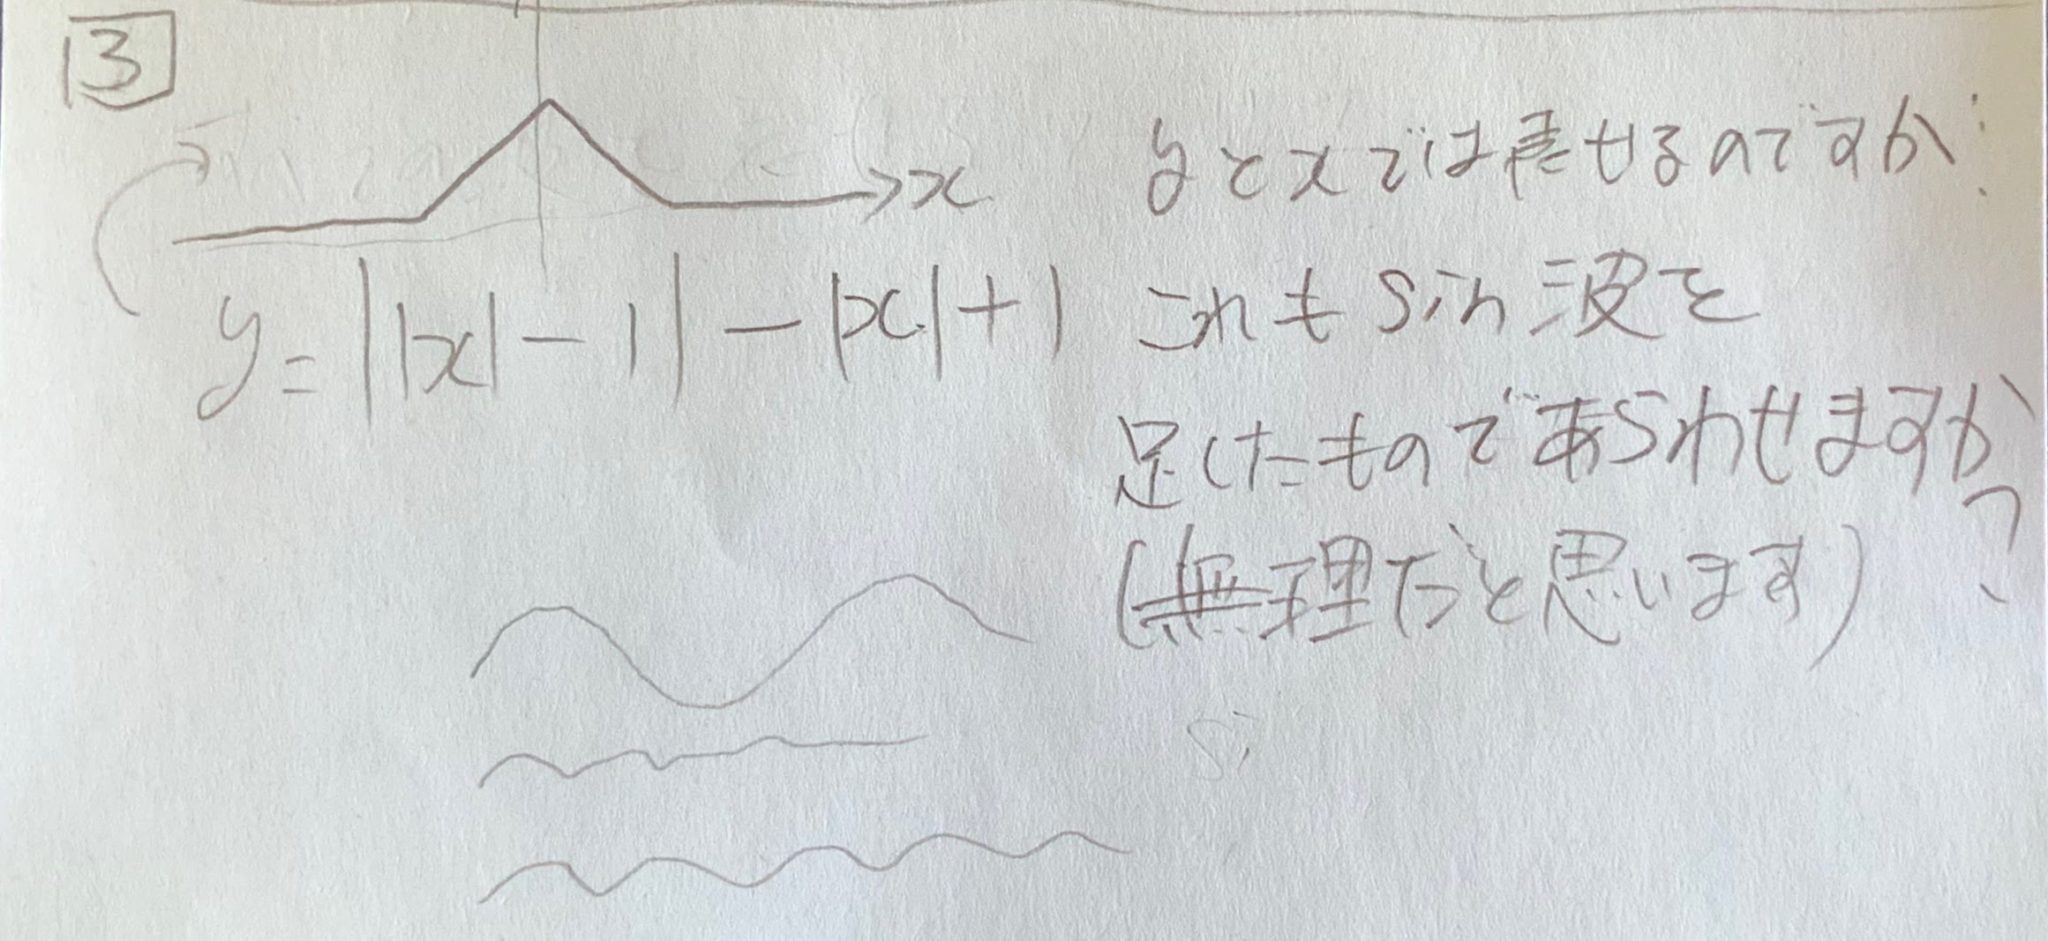 3
x
y = ||x| - 1| - |x| + 1
yとxでは表せるのですが、
これもsin波を
足したものであらわせますか?
(無理だと思います)
si